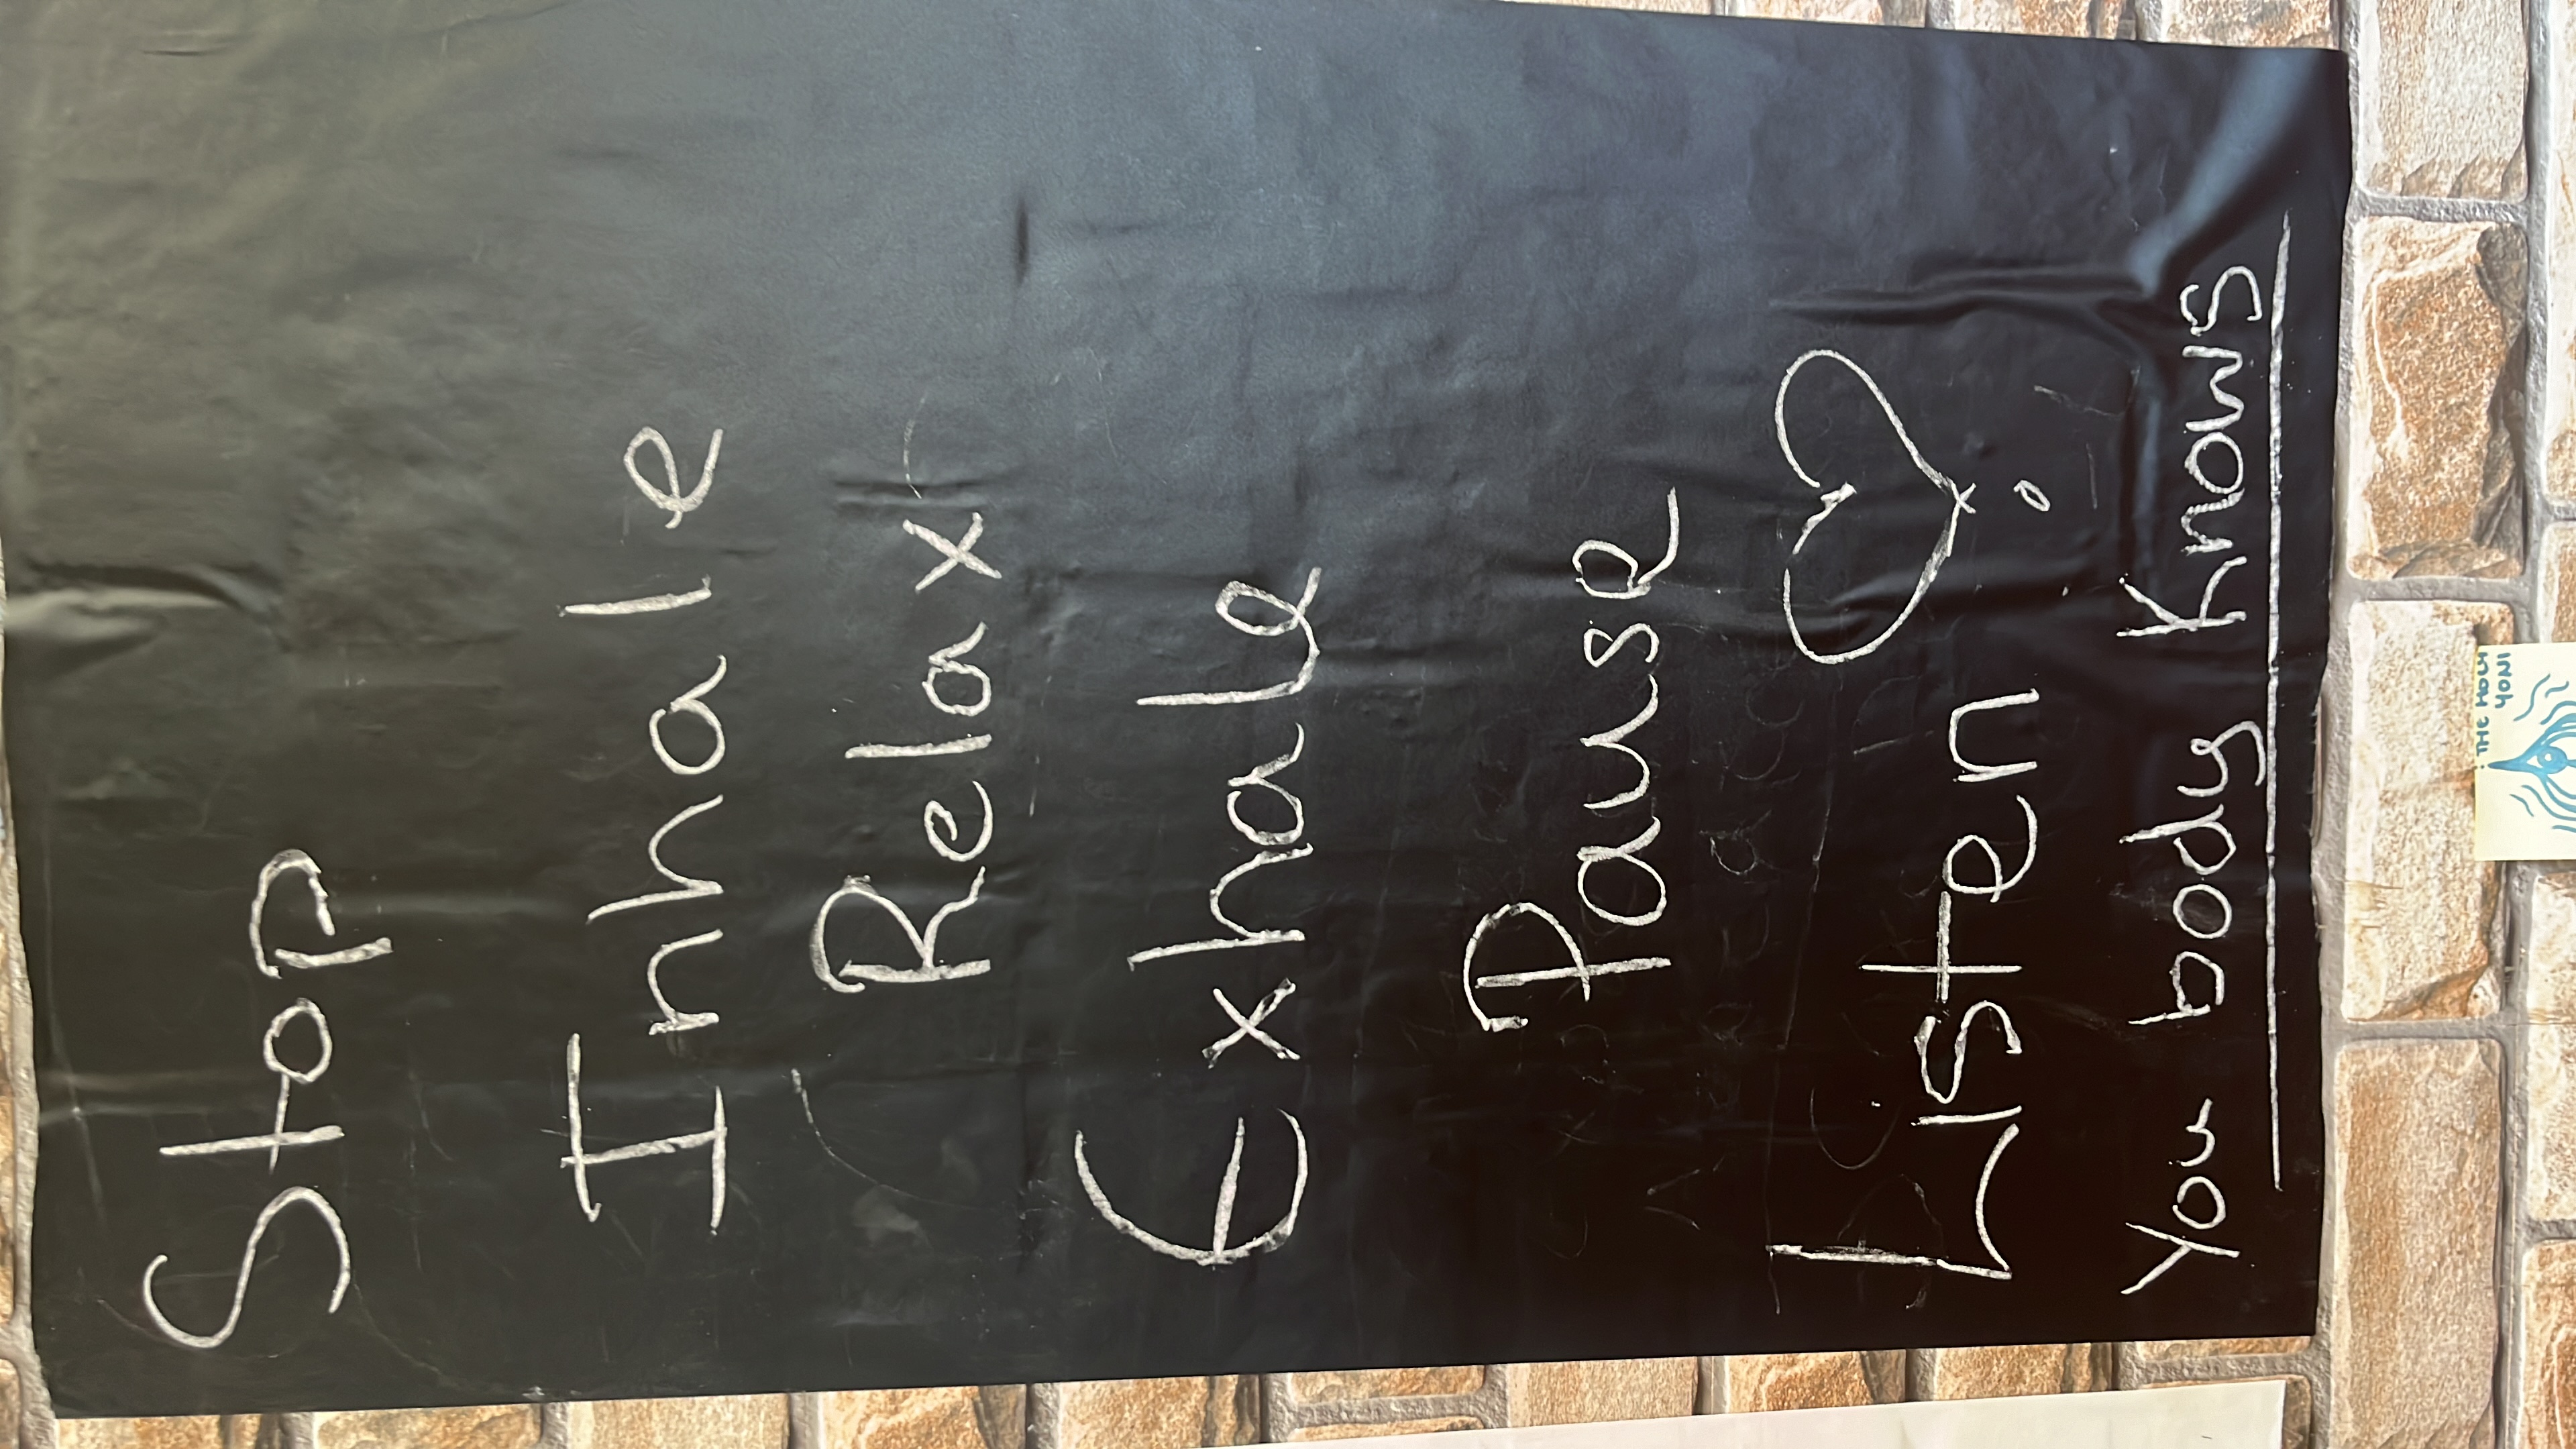 Stop
Inhale
Relax
Exhale
Pause
Listen
You body Knows
THE HOLY
YONI